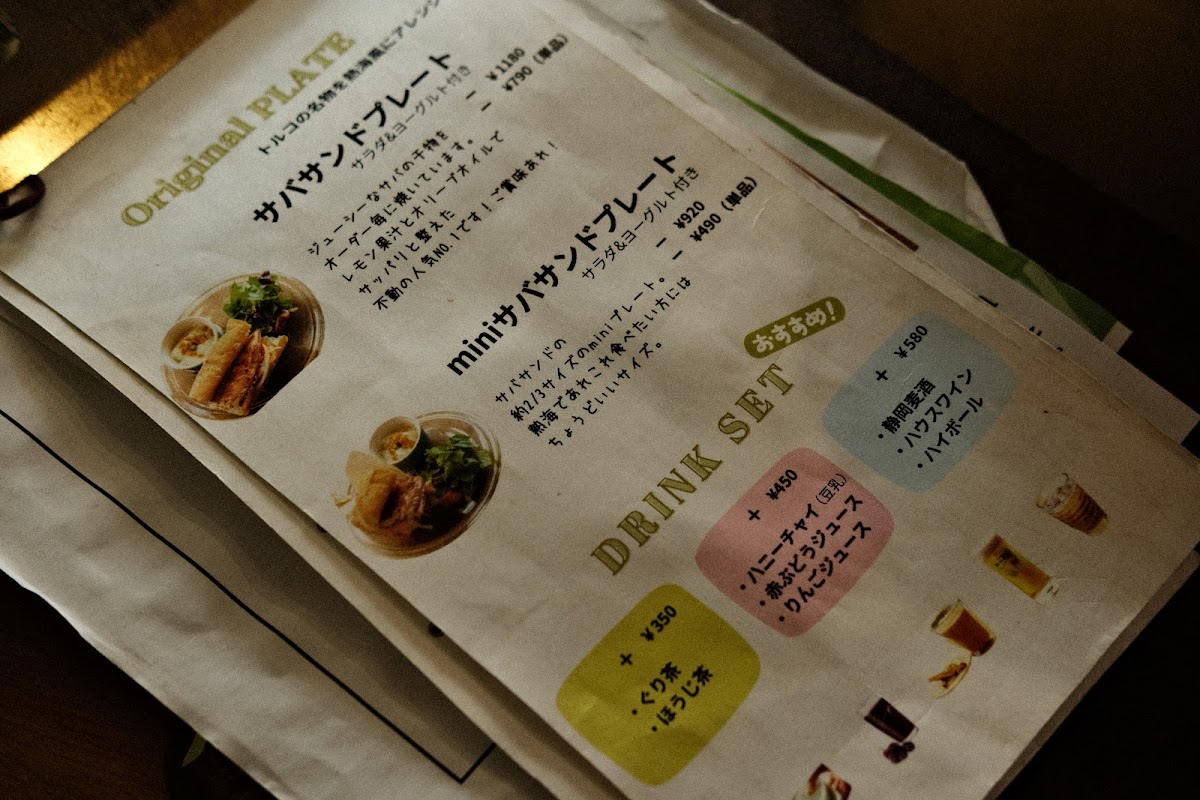 Original PLATE
トルコの名物を熱海風にアレンジ
サバサンドプレート
サラダ&ヨーグルト付き
ー ¥1180
ー ¥790 (単品)
ジューシーなサバの干物を
オーダー毎に焼いています。
レモン果汁とオリーブオイルで
サッパリと整えた
不動の人気NO.1です!ご賞味あれ!
miniサバサンドプレート
サラダ&ヨーグルト付き
ー ¥920
ー ¥490 (単品)
サバサンドの
約2/3サイズのminiプレート。
熱海であれこれ食べたい方には
ちょうどいいサイズ。
おすすめ!
DRINK SET
+ ¥350
・ぐり茶
・ほうじ茶
+ ¥450
・ハニーチャイ(豆乳)
・赤ぶどうジュース
・りんごジュース
+ ¥580
・静岡麦酒
・ハウスワイン
・ハイボール